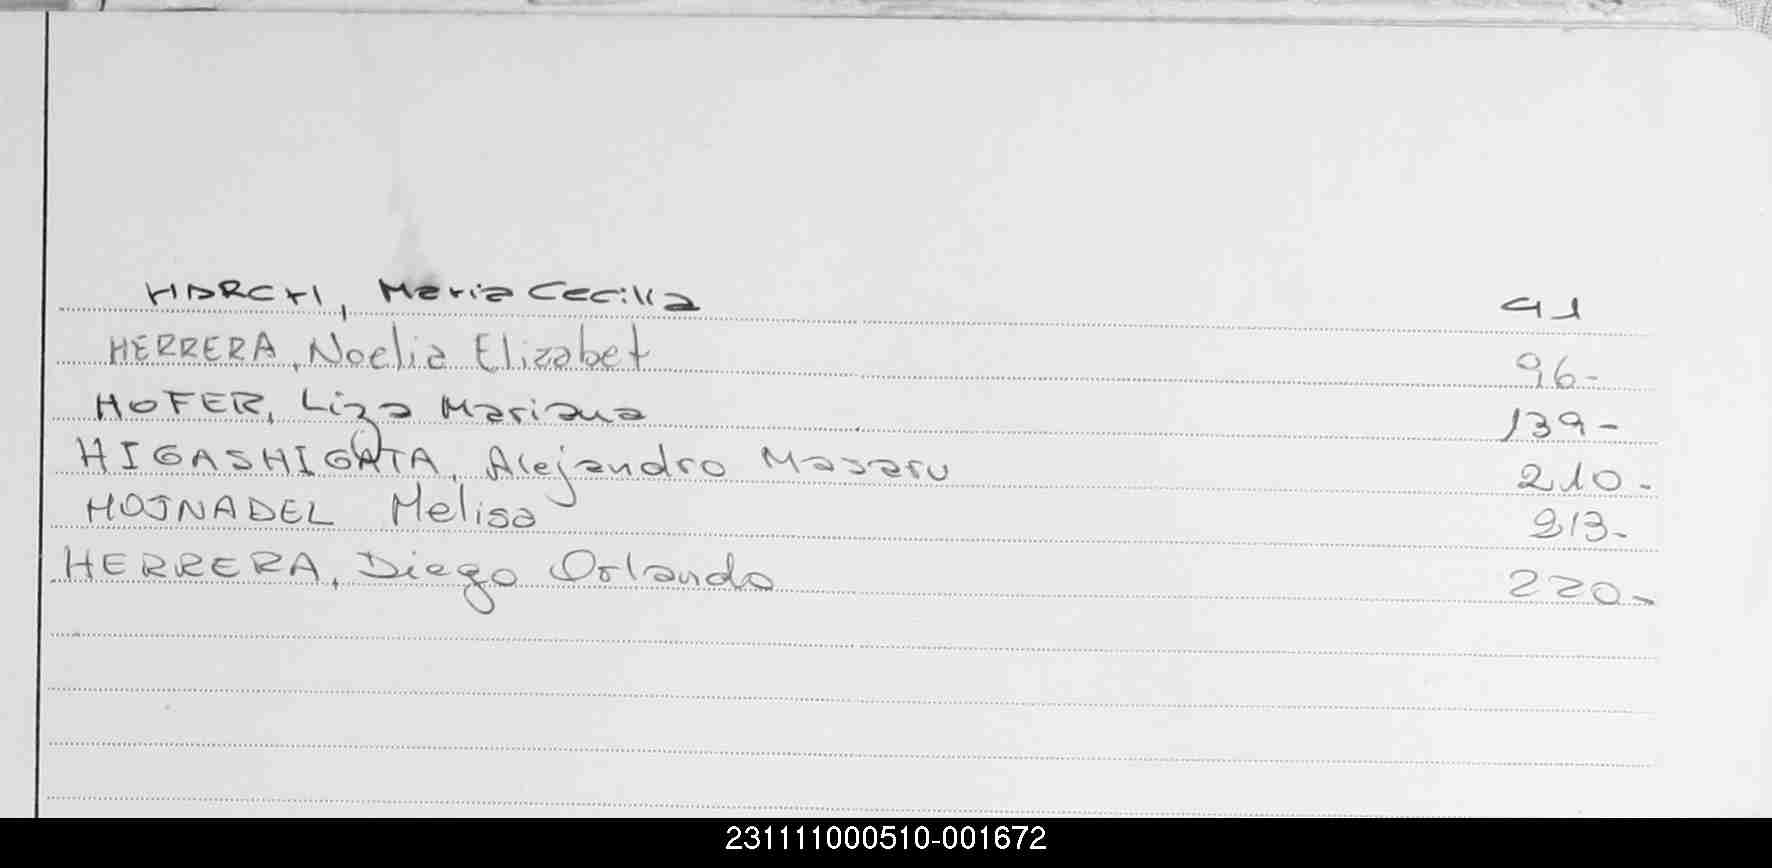 HARCHI, Maria Cecilia 91
HERRERA, Noelia Elizabet 96-
HOFER, Liza Mariana 139-
HIGASHIGATA, Alejandro Masaru 210-
HOJNADEL Melisa 213-
HERRERA, Diego Orlando 220-
231111000510-001672